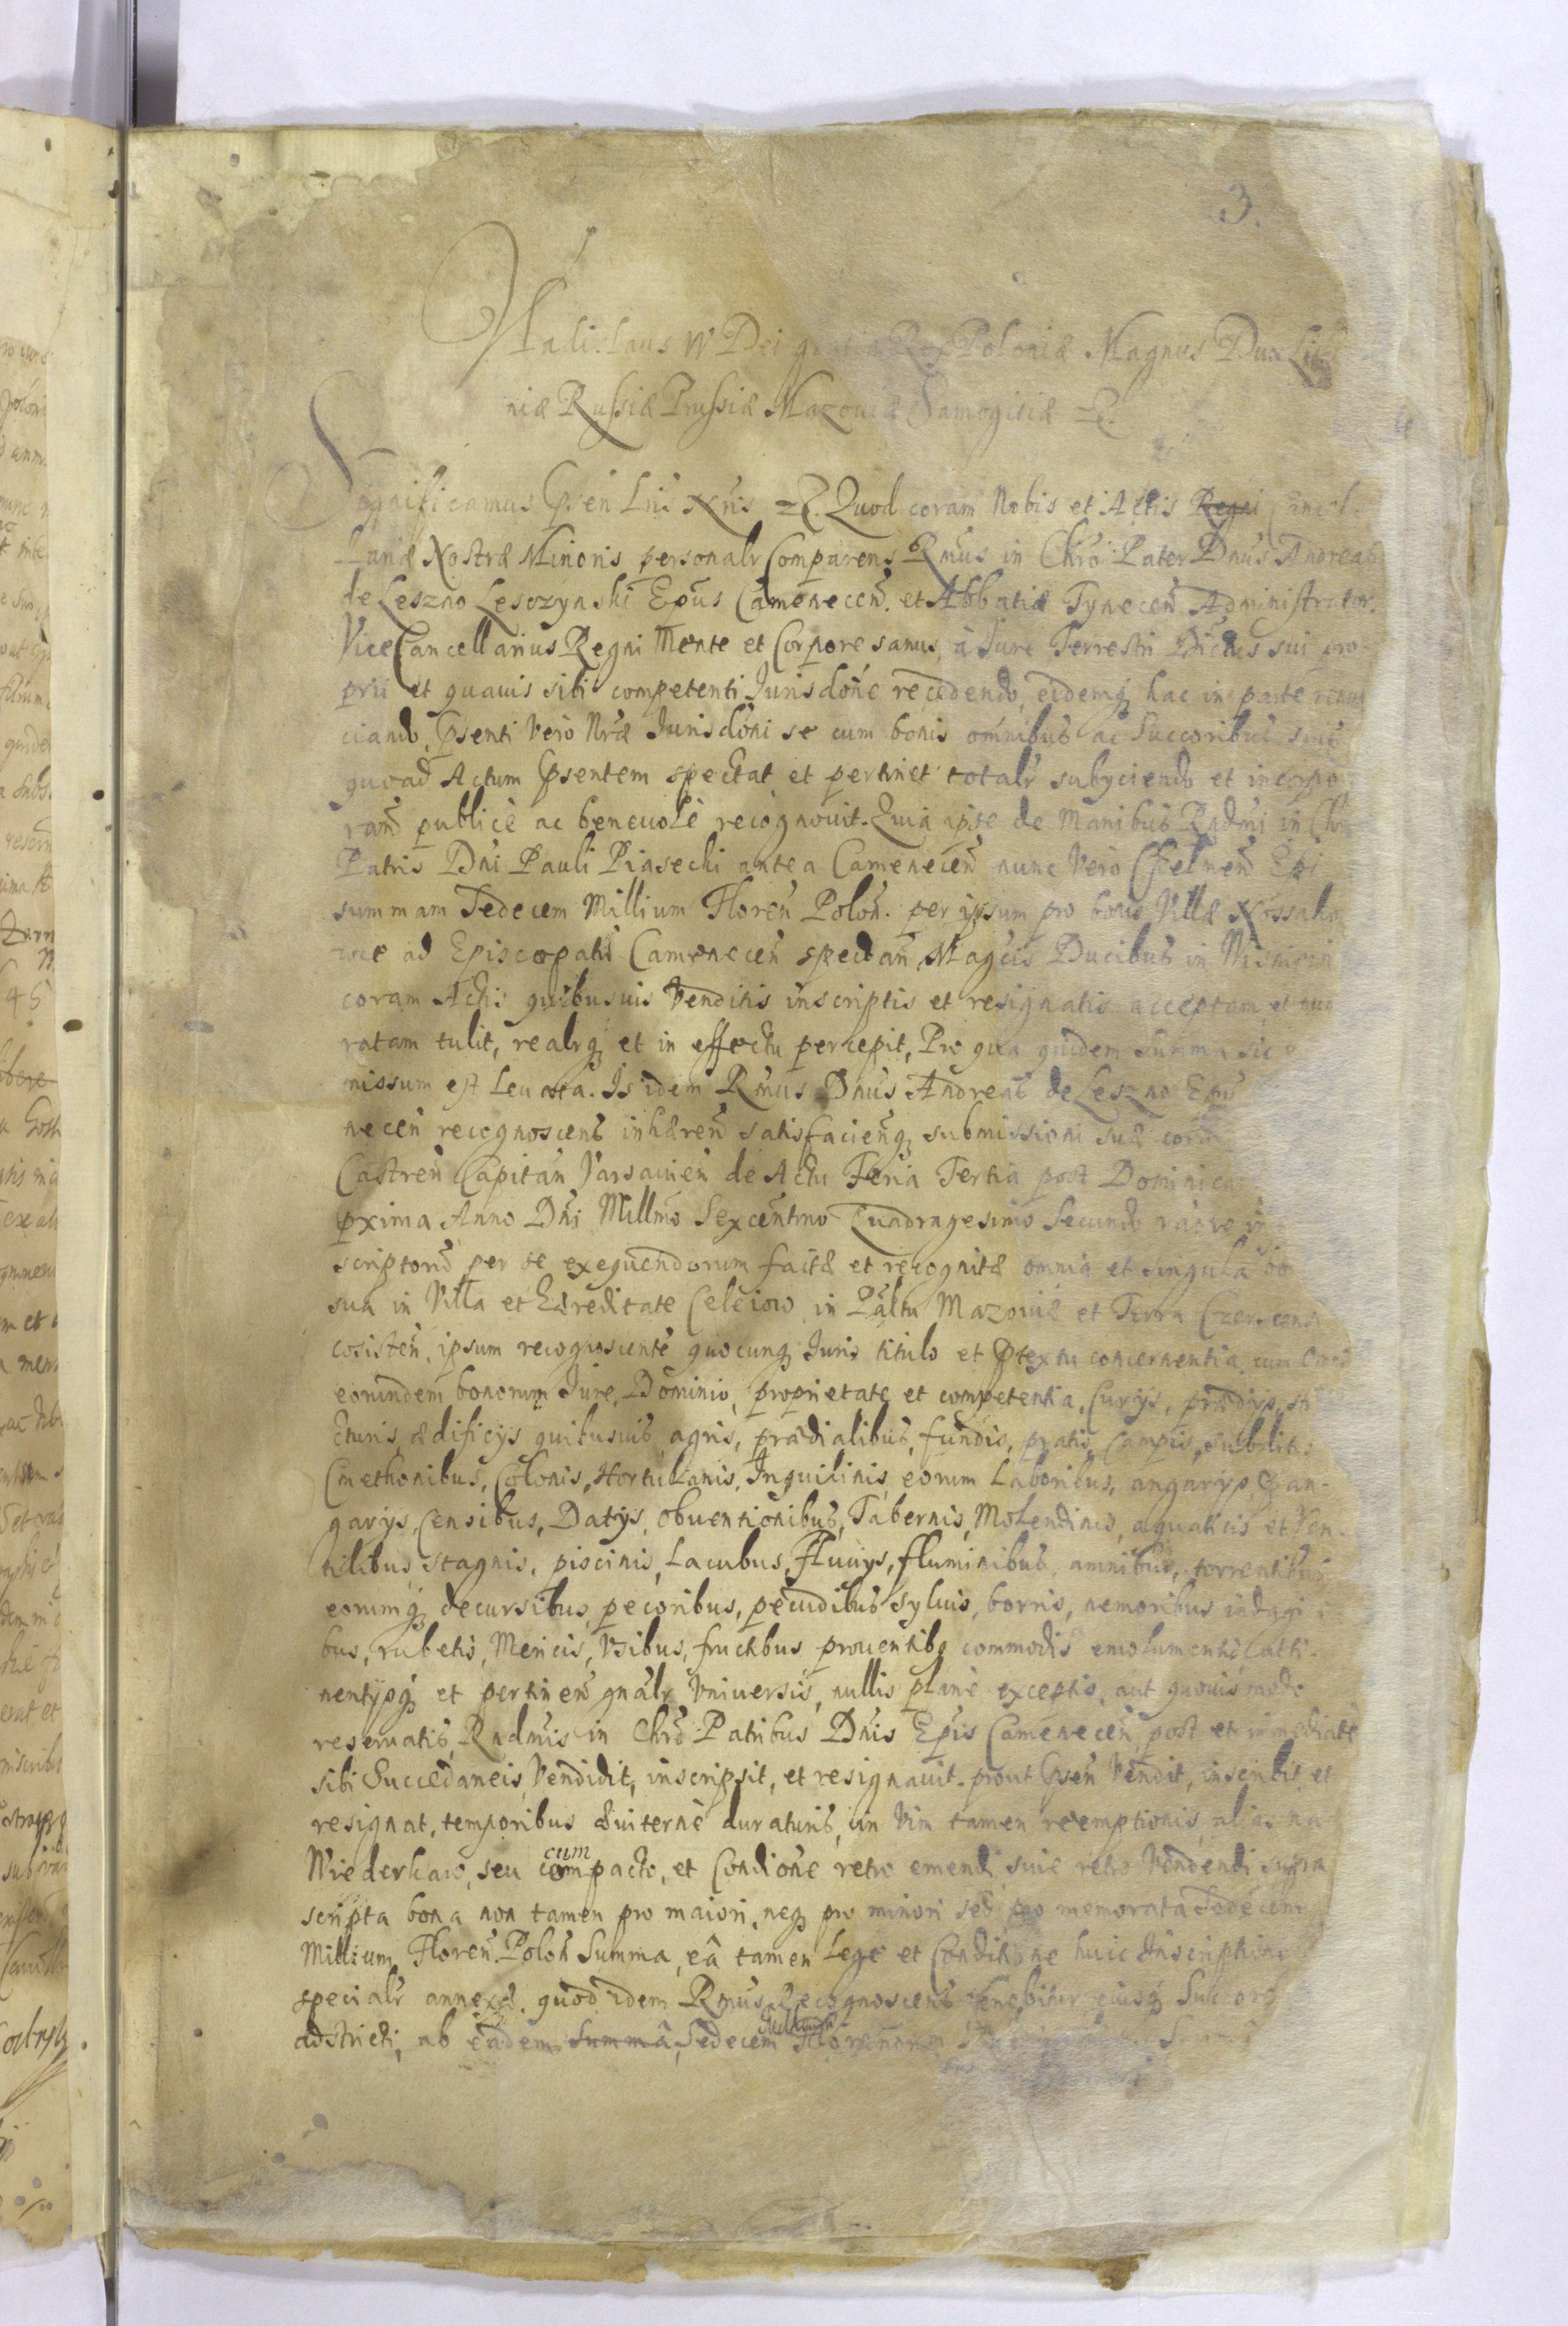 3.
Vladislaus IV Dei gratia Rex Poloniæ Magnus Dux Lit
niæ Russiæ Prussiæ Mazouiæ Samogitiæ &.
Significamus Pñsen Lris Nris &. Quod coram Nobis et Actis Regni Cancel-
lariæ Nostræ Minoris personalr Comparens Rmus in Chro Pater Dnus Andreas
de Leszno Lesczynski Epūs Camenecen̄. et Abbatiæ Tynecen̄ Administrator.
ViceCancellarius Regni Mente et Corpore sanus, à Jure Terrestri Districtus sui pro-
prii et quauis sibi competenti Jurisdōne recedendo, eidemq, hac in parte renun
ciando, Pñsenti Vero Nræ Jurisdōni se cum bonis omnibus ac Successoribus suis
quoad Actum Pñsentem spectat et pertinet totalr subyciendo et incorpo
ran̄ publicè ac beneuolè recognouit. Quia ipse de Manibus Rndmi in Chro
Patris Dni Pauli Piasecki antea Camenecen̄ nunc Vero Chelmen̄ Epi
summam Sedecem Millium Floren̄ Polon̄. per ipsum pro bonis Villæ Kossako
wce ad Episcopatū Camenecen̄ spectan̄ Magcis Ducibus in Wisniew
coram Actis quibusuis Venditis inscriptis et resignatis acceptam et
ratam tulit, realrq, et in effectu percepit, Pro qua quidem summa sic
missum est leuata. Is idem Rmus Dnus Andreas de Leszno Epūs
necen̄ recognoscens inhæren̄ satisfacien̄q, submissioni suæ coram
Castren̄ Capitan̄ Varsauien̄ de Actu Feria Tertia post Dominicam
pxima Anno Dni Millmo Sexcentmo Quadragesimo Secundo raōne in
scriptorū per se exequendorum factæ et recognitæ omnia et singula bo
sua in Villa et Hæreditate Celeiow in Pāltu Mazouiæ et Terra Czercensi
cosisten̄, ipsum recognoscentē quocunq, Juris titulo et Ptextu concernentia, cum omni
eorundem bonorum Jure, Dominio, proprietate et competentia, Curijs, prædijs, str
cturis, ædificijs quibusuis, agris, prædialibus, fundis, pratis, campis, subditis
Cmethonibus, Colonis, Hortulanis, Inquilinis, eorum Laboribus, angarijs, Pan-
garijs, Censibus, Datijs, obuentionibus, Tabernis, Molendinis, aquaticis et Ven-
tilibus, stagnis, piscinis, Lacubus, Fluuijs, fluminibus, amnibus, torrentibus
eorumq, decursibus, pecoribus, pecudibus, syluis, borris, nemoribus indagi
bus, rubetis, Mericis, Vsibus, fructibus prouentibq commodis emolumentis atti-
nentijsq, et pertinen̄ gnālr Vniuersis, nullis planè exceptis, aut quouis modo
reseruatis, Rndmis in Chrō Patribus Dnis Epīs Camenecen̄, post et immediatè
sibi Succedaneis, Vendidit, inscripsit, et resignauit. prout Pñsen̄ Vendit, inscribit, et
resignat, temporibus æuiternè duraturis, in Vim tamen reemptionis, alias na
Wiederkaw, seu cum compacto, et Condiōne retro emendi siue retro Vendendi supra
scripta bona non tamen pro maiori, neq, pro minori sed pro memorata Sedecem
Millium Floren̄. Polon̄ Summa, eâ tamen Lege et Conditione huic Inscriptioni
specialr annexâ. quod idem Rmus Recognoscens tenebitur eiusq, Succ
adstricti, ab eadem Summâ, Sedecem Millium Florenorum